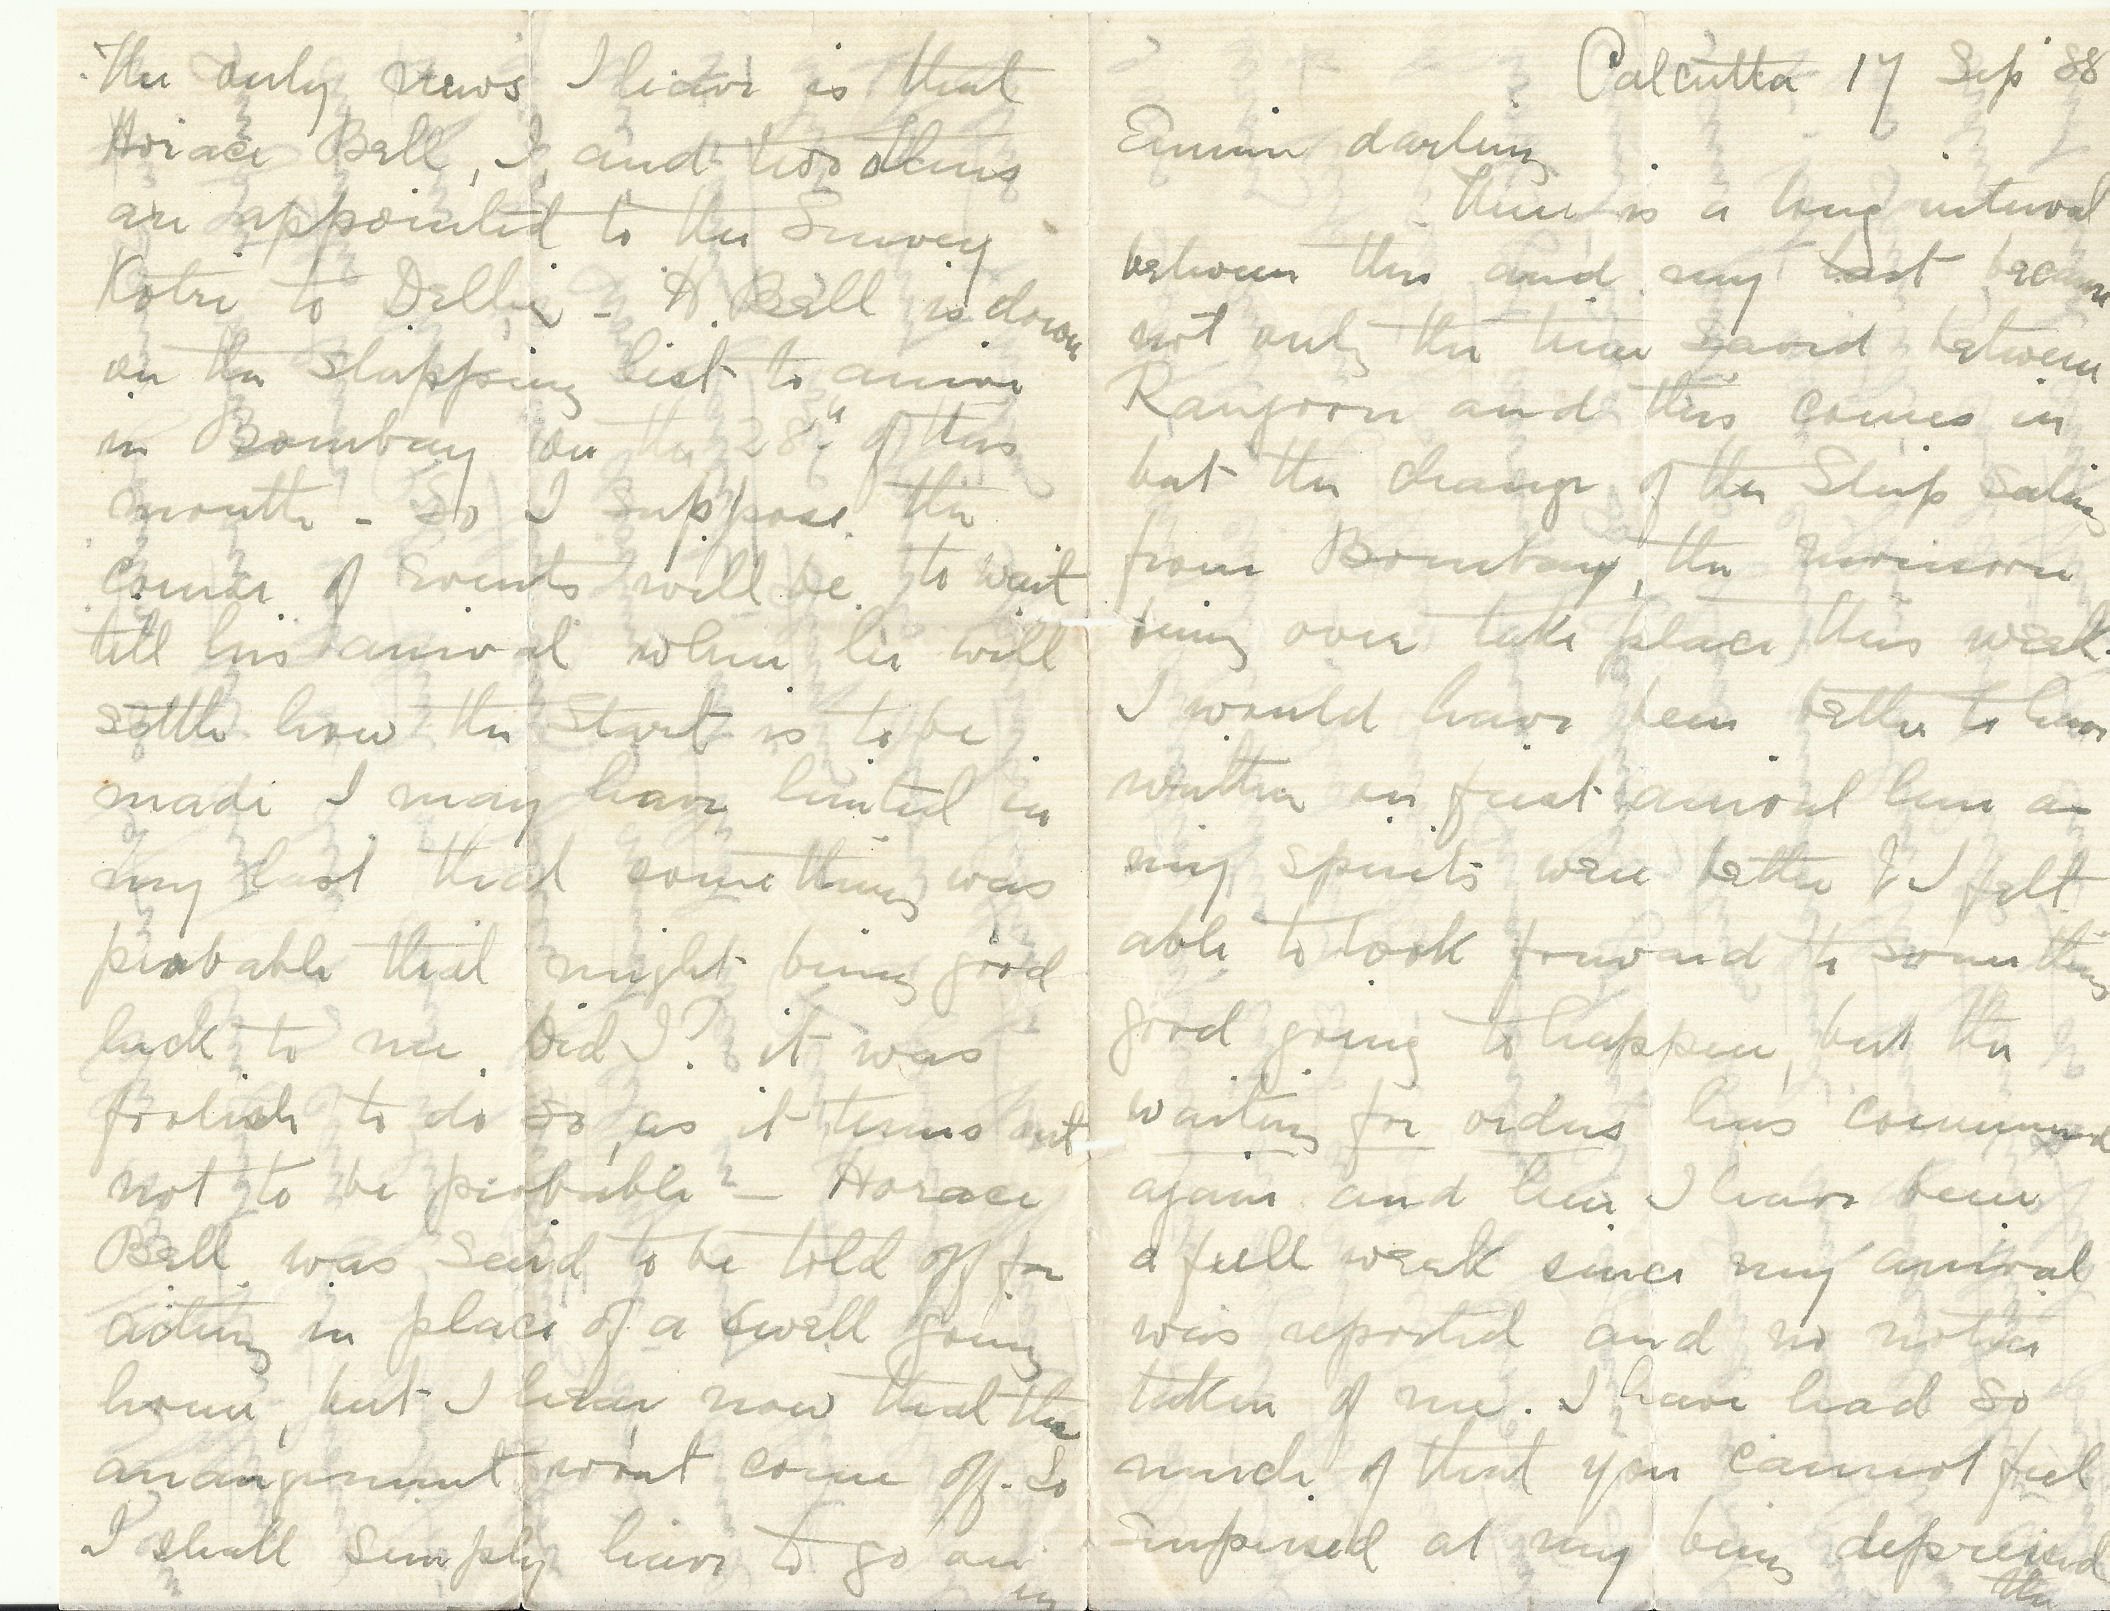 Calcutta 17 Sep '88
darling
There is a long interval
between this and my last because
not only the time saved between
Rangoon and this comes in
but the change of the Ship sailing
from Bombay, the monsoon
being over take place this week.
I would have been better to have
written on first arrival here as
my spirits were better & I felt
able to look forward to something
good going to happen, but the
waiting for orders has commenced
again and here I have been
a full week since my arrival
was reported and no notice
taken of me. I have had so
much of that you cannot feel
surprised at my being depressed
The
The only news I have is that
Horace Bell, I, and two others
are appointed to the Survey
Kotri to Delhi - H. Bell is down
on the Shipping list to arrive
in Bombay on the 28th of this
month - So I suppose the
course of events will be to wait
till his arrival when he will
settle how the start is to be
made I may have hinted in
my last that something was
probable that might bring good
luck to me. Did I? it was
foolish to do so, as it turns out
not to be probable — Horace
Bell was said to be told off for
acting in place of a swell going
home, but I hear now that the
arrangement wont come off. So
I shall simply have to go on
in